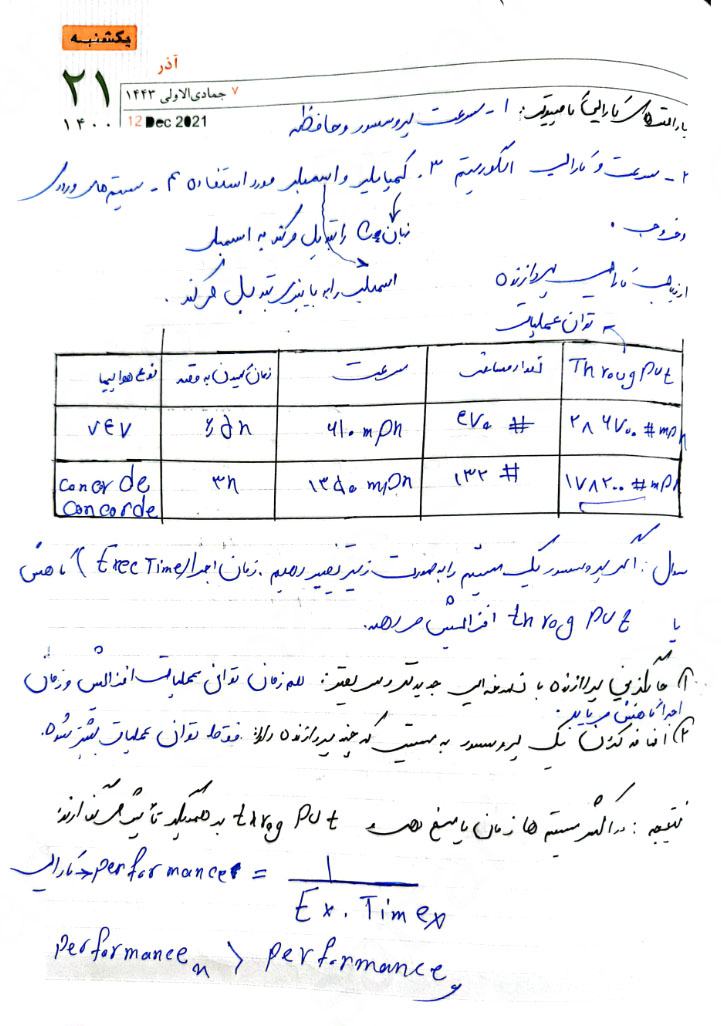 یکشنبه
آذر
۲۱
۷ جمادی‌الاولی ۱۴۴۳
۱۴۰۰
12 Dec 2021
کارایی کامپیوتر: ۱- سرعت پروسسور و حافظه
۲- سرعت و کارایی الگوریتم ۳- کمپایلر و اسمبلر مورد استفاده ۴- سیستم‌های ورودی
و خروجی.
زبان C را تبدیل می‌کند به اسمبلی
اسمبلی را به باینری تبدیل می‌کند.
ارزیابی کارایی پردازنده
توان عملیات
نوع هواپیما زمان رسیدن به مقصد سرعت تعداد مسافر ThrougPut
۷۴۷ ۶.۵h ۶۱۰ mph ۴۷۰ # ۲۸۶۷۰۰ #mph
concrde
Concorde ۳h ۱۳۵۰ mph ۱۳۲ # ۱۷۸۲۰۰ #mph
سوال: اگر پروسسور یک سیستم را به صورت زیر تغییر دهیم. زمان اجرا (Exec Time) کاهش
یا throg Put افزایش می‌دهد.
۱) جایگذینی پردازنده با نسخه‌ای جدیدتر و سریعتر: هم زمان توان عملیات افزایش و زمان
اجرا کاهش می‌یابد.
۲) اضافه کردن یک پروسسور به سیستمی که چند پردازنده دارد: فقط توان عملیات بیشتر شود.
نتیجه: در اکثر سیستم ها زمان پاسخ دهی و throg Put به همدیگر تأثیر می‌گذارند
کارایی → performancex = 1 / Ex. Timex
performance x > performance y